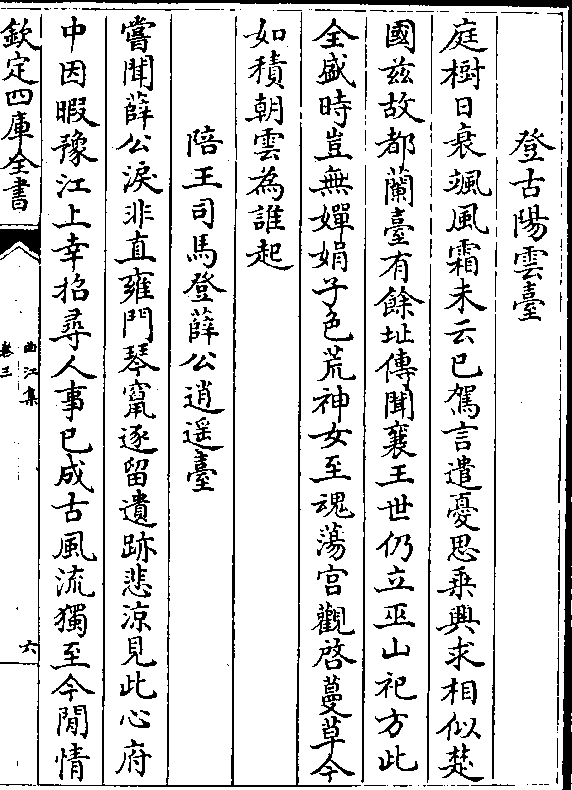 登古陽雲臺
庭樹日衰颯風霜未云已駕言遣憂思乗興求相似楚
國兹故都蘭臺有餘址傳聞襄王世仍立巫山祀方此
全盛時豈無嬋娟子色荒神女至魂蕩宫觀啓蔓草今
如積朝雲為誰起
陪王司馬登薛公逍遥臺
嘗聞薛公淚非直雍門琴竄逐留遺跡悲涼見此心府
中因暇豫江上幸招尋人事已成古風流獨至今閒情
欽定四庫全書
曲江集
卷三
六